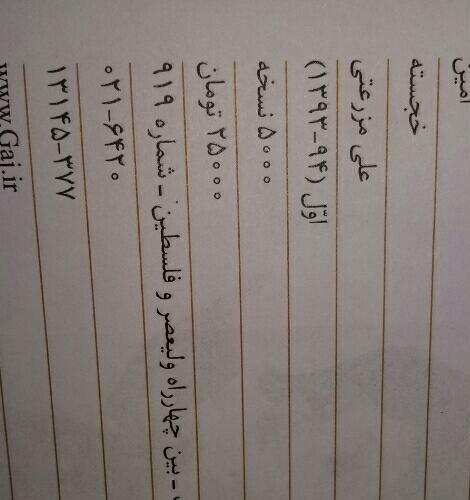 امین
خجسته
علی مزرعتی
اوّل (۹۴-۱۳۹۳)
۵۰۰۰ نسخه
۲۵۰۰۰ تومان
- بین چهارراه ولیعصر و فلسطین - شماره ۹۱۹
۰۲۱-۶۴۲۰
۱۳۱۴۵-۳۷۷
www.Gaj.ir